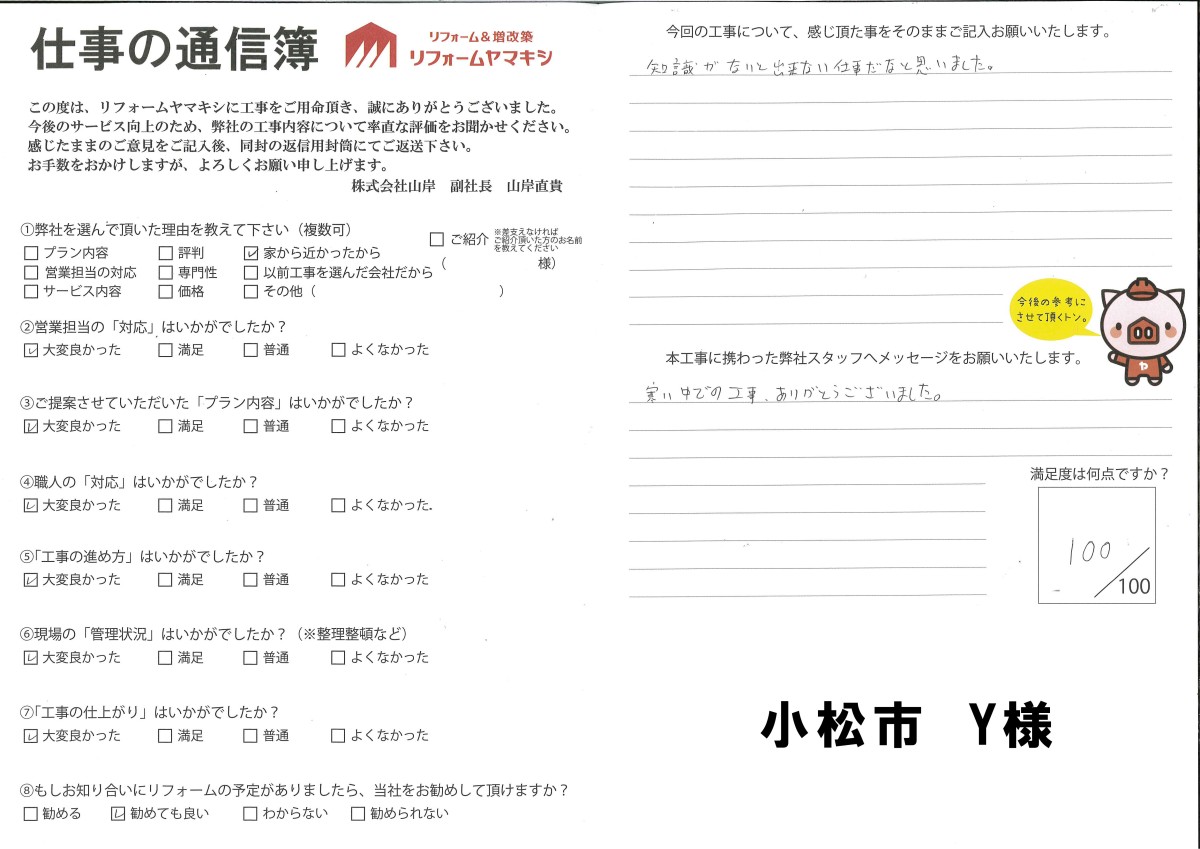 仕事の通信簿
リフォーム&増改築
リフォームヤマキシ
この度は、リフォームヤマキシに工事をご用命頂き、誠にありがとうございました。
今後のサービス向上のため、弊社の工事内容について率直な評価をお聞かせください。
感じたままのご意見をご記入後、同封の返信用封筒にてご返送下さい。
お手数をおかけしますが、よろしくお願い申し上げます。
株式会社山岸　副社長　山岸直貴
①弊社を選んで頂いた理由を教えて下さい（複数可）
□プラン内容　□評判　☑家から近かったから
□営業担当の対応　□専門性　□以前工事を選んだ会社だから
□サービス内容　□価格　□その他（　　　）
□ご紹介
※差支えなければ
ご紹介頂いた方のお名前
を教えてください
（　　　様）
②営業担当の「対応」はいかがでしたか？
☑大変良かった　□満足　□普通　□よくなかった
③ご提案させていただいた「プラン内容」はいかがでしたか？
☑大変良かった　□満足　□普通　□よくなかった
④職人の「対応」はいかがでしたか？
☑大変良かった　□満足　□普通　□よくなかった
⑤「工事の進め方」はいかがでしたか？
☑大変良かった　□満足　□普通　□よくなかった
⑥現場の「管理状況」はいかがでしたか？（※整理整頓など）
☑大変良かった　□満足　□普通　□よくなかった
⑦「工事の仕上がり」はいかがでしたか？
☑大変良かった　□満足　□普通　□よくなかった
⑧もしお知り合いにリフォームの予定がありましたら、当社をお勧めして頂けますか？
□勧める　☑勧めても良い　□わからない　□勧められない
今回の工事について、感じ頂た事をそのままご記入お願いいたします。
知識がないと出来ない仕事だなと思いました。
今後の参考に
させて頂くトン。
ヤ
本工事に携わった弊社スタッフへメッセージをお願いいたします。
寒い中での工事、ありがとうございました。
満足度は何点ですか？
100
/100
小松市　Y様